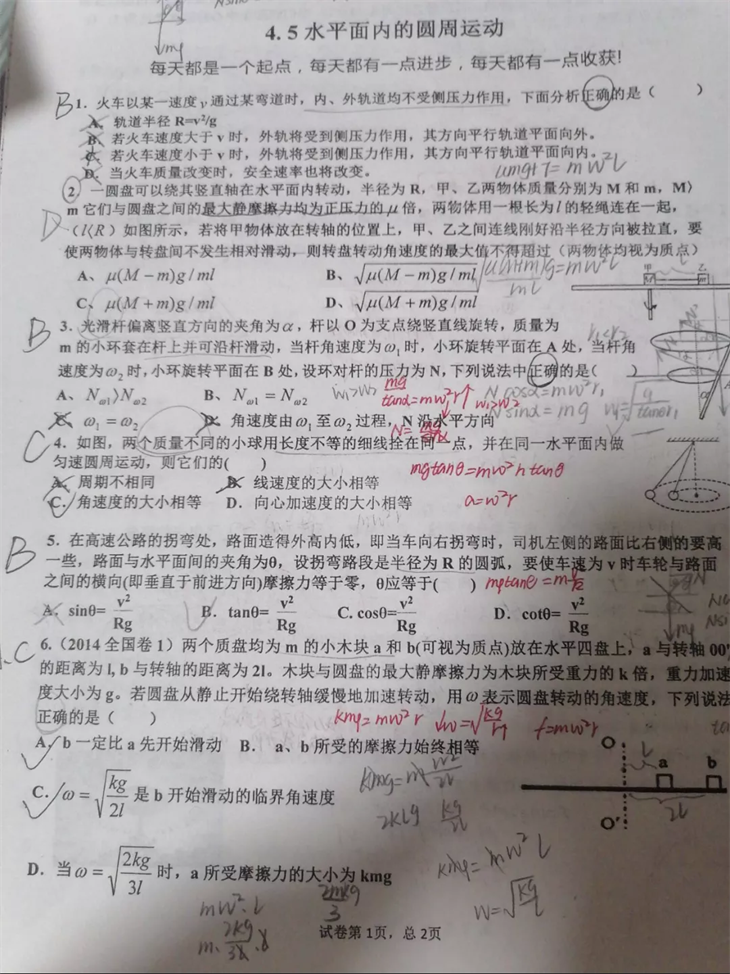 4.5水平面内的圆周运动
每天都是一个起点，每天都有一点进步，每天都有一点收获!
B 1．火车以某一速度 v 通过某弯道时，内、外轨道均不受侧压力作用，下面分析正确的是（ ）
A．轨道半径 R=v²/g
B．若火车速度大于 v 时，外轨将受到侧压力作用，其方向平行轨道平面向外。
C．若火车速度小于 v 时，外轨将受到侧压力作用，其方向平行轨道平面向内。
D．当火车质量改变时，安全速率也将改变。
umg+T=mw²l
2 一圆盘可以绕其竖直轴在水平面内转动，半径为 R，甲、乙两物体质量分别为 M 和 m，M〉
D m 它们与圆盘之间的最大静摩擦力均为正压力的 μ 倍，两物体用一根长为 l 的轻绳连在一起，
（l〈R）如图所示，若将甲物体放在转轴的位置上，甲、乙之间连线刚好沿半径方向被拉直，要
使两物体与转盘间不发生相对滑动，则转盘转动角速度的最大值不得超过（两物体均视为质点）
A、μ(M－m)g/ml B、√μ(M－m)g/ml
C、μ(M＋m)g/ml D、√μ(M＋m)g/ml
甲 乙
B 3．光滑杆偏离竖直方向的夹角为α，杆以 O 为支点绕竖直线旋转，质量为
m 的小环套在杆上并可沿杆滑动，当杆角速度为ω1时，小环旋转平面在 A 处，当杆角
速度为ω2时，小环旋转平面在 B 处，设环对杆的压力为 N，下列说法中正确的是（ ）
A、Nω1〉Nω2 B、Nω1=Nω2
mg/tanα=mw²r↑ w₁>w₂
Ncosα=mw²r₁
Nsinα=mg
C、ω1=ω2 D、角速度由ω1至ω2过程，N 沿水平方向
C 4．如图，两个质量不同的小球用长度不等的细线拴在同一点，并在同一水平面内做
匀速圆周运动，则它们的( )
A．周期不相同 B．线速度的大小相等
mgtanθ=mw²htanθ
C．角速度的大小相等 D．向心加速度的大小相等
a=w²r
5．在高速公路的拐弯处，路面造得外高内低，即当车向右拐弯时，司机左侧的路面比右侧的要高
B 一些，路面与水平面间的夹角为θ，设拐弯路段是半径为 R 的圆弧，要使车速为 v 时车轮与路面
之间的横向(即垂直于前进方向)摩擦力等于零，θ应等于( )
A．sinθ=v²/Rg B．tanθ=v²/Rg C. cosθ=v²/Rg D．cotθ=v²/Rg
6.（2014 全国卷 1）两个质盘均为 m 的小木块 a 和 b(可视为质点)放在水平四盘上，a 与转轴 00'
的距离为 l, b 与转轴的距离为 2l。木块与圆盘的最大静摩擦力为木块所受重力的 k 倍，重力加速
度大小为 g。若圆盘从静止开始绕转轴缓慢地加速转动，用ω表示圆盘转动的角速度，下列说法
正确的是（ ）
kmg=mw²r w=√kg/r f=mw²r
A．b 一定比 a 先开始滑动 B． a、b 所受的摩擦力始终相等
O a b
C．ω=√kg/2l 是 b 开始滑动的临界角速度
2l
O'
kmg=mw²l
D．当ω=√2kg/3l 时，a 所受摩擦力的大小为 kmg
w=√kg/l
mw²·l
2mkg/3
试卷第 1页，总 2页